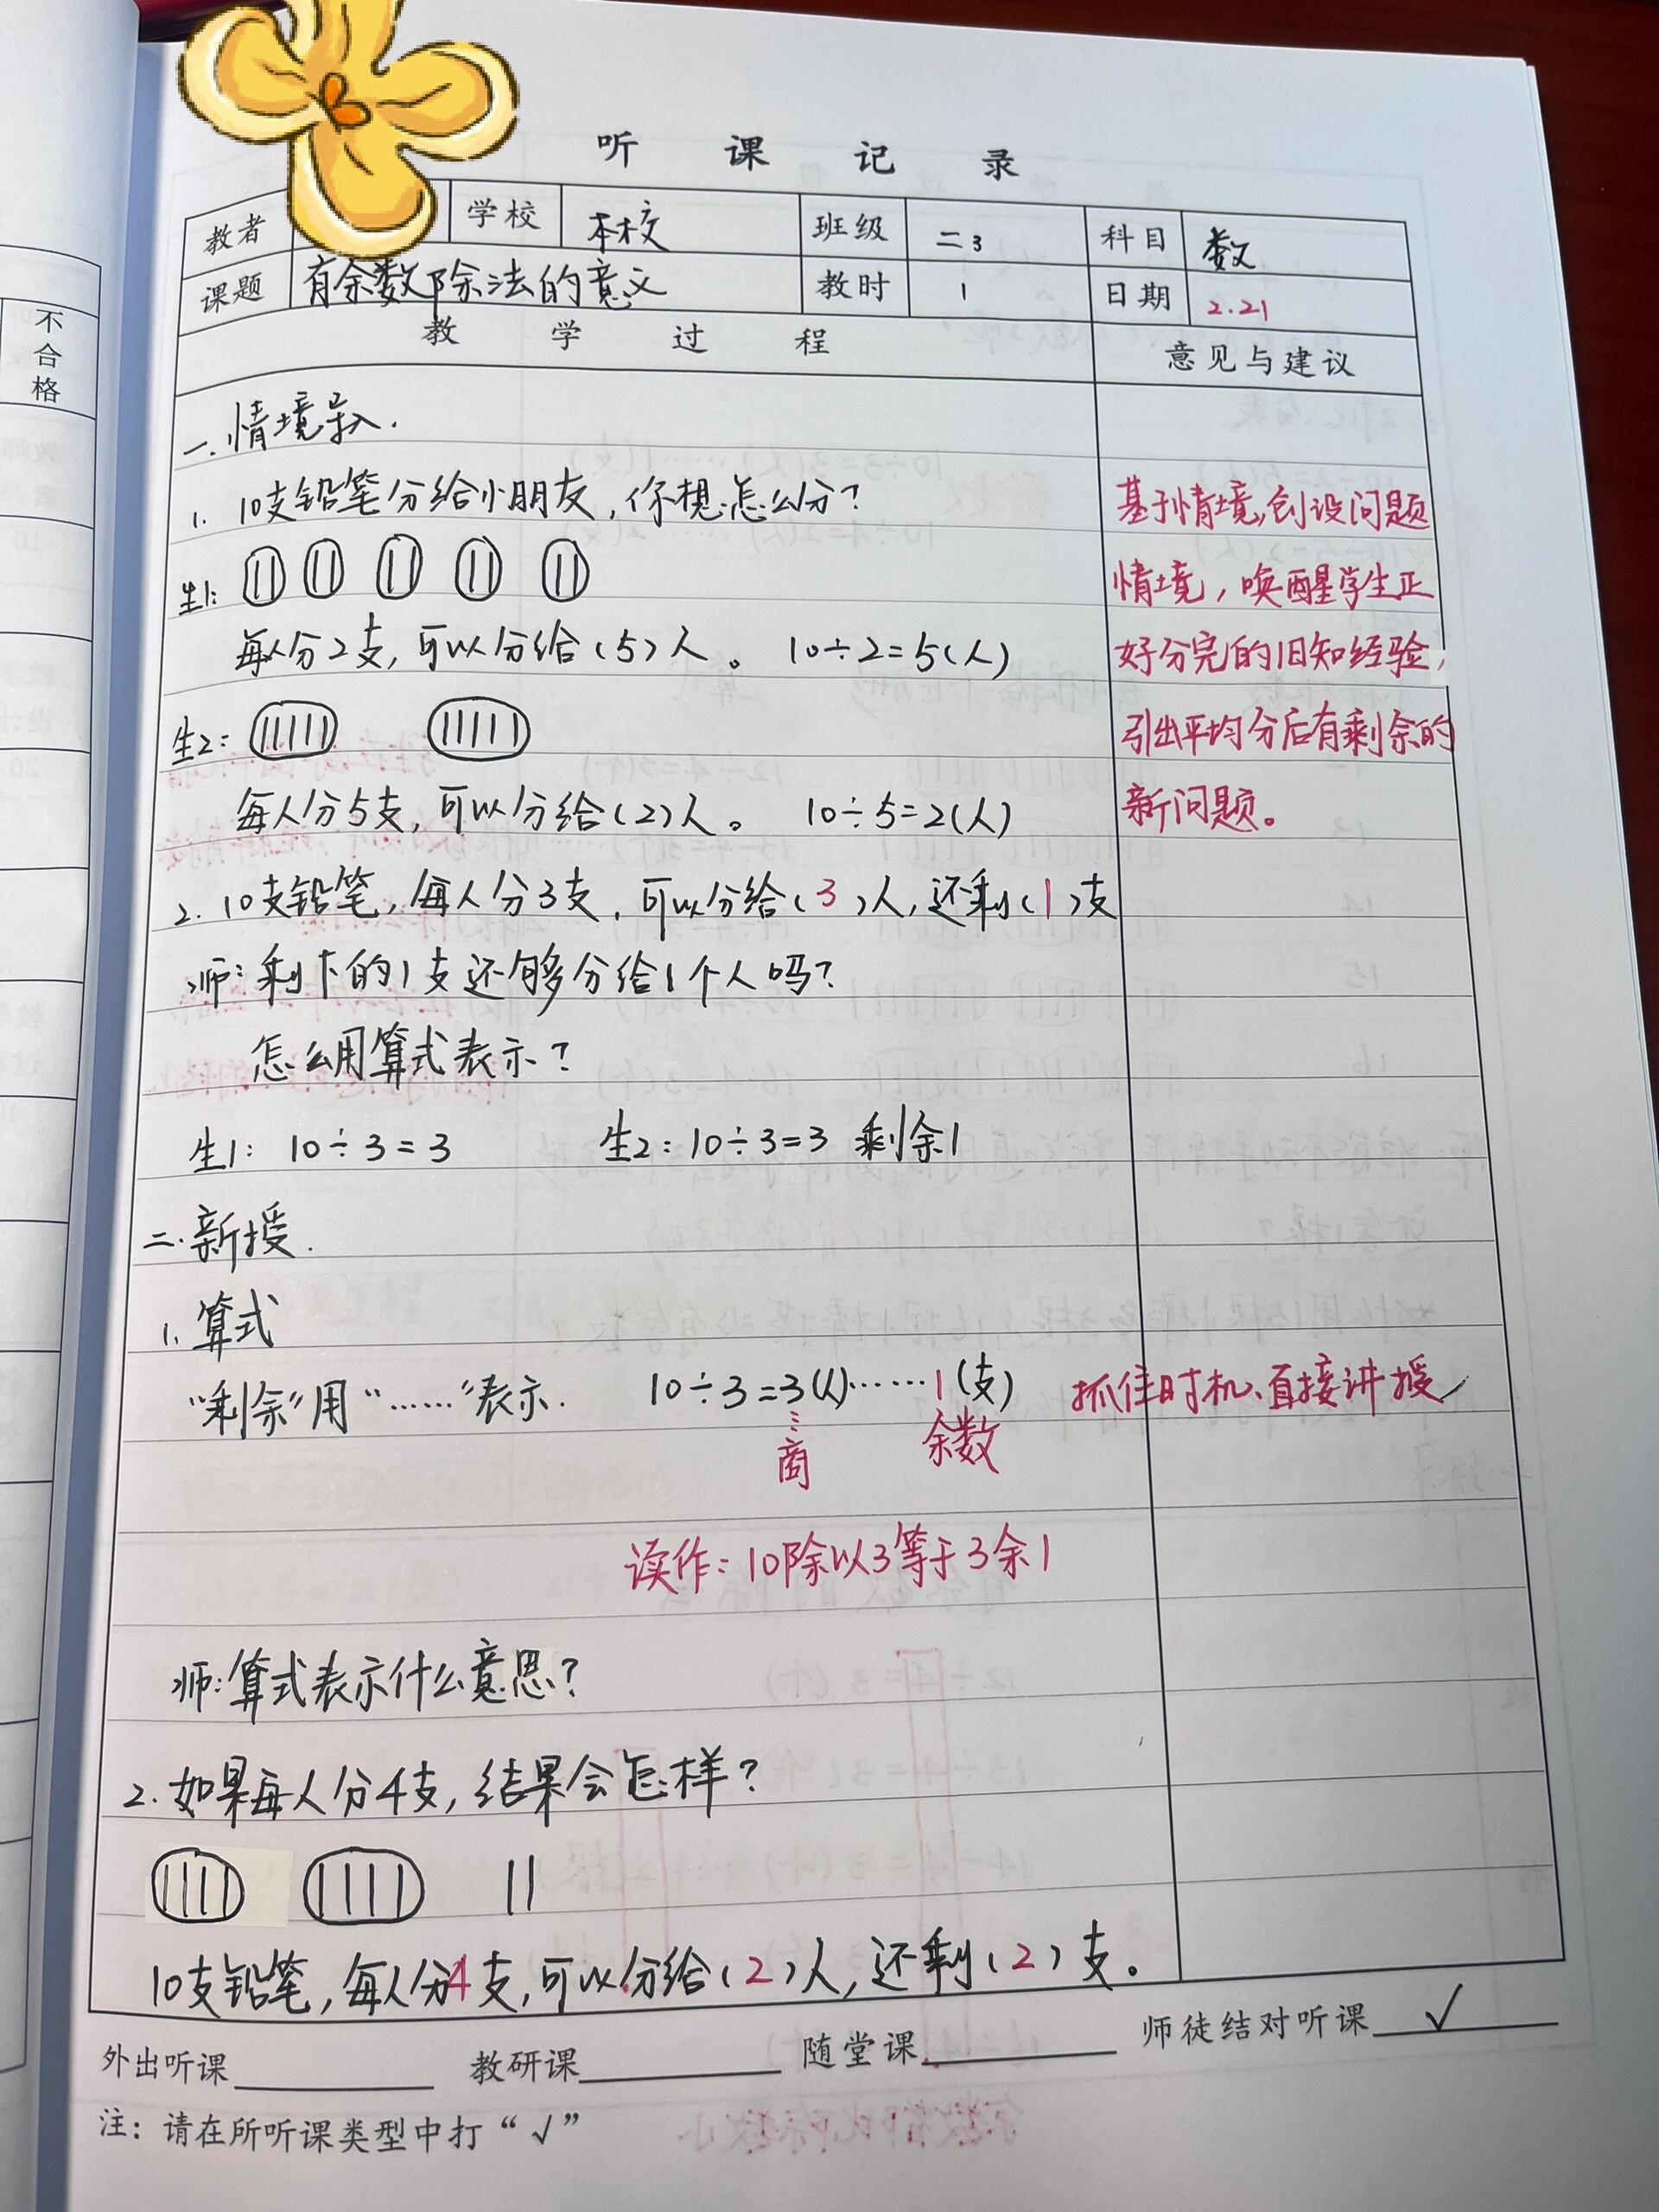 听 课 记 录
教者 学校 本校 班级 二3 科目 数
课题 有余数除法的意义 教时 1 日期 2.21
教 学 过 程 意见与建议
不合格
一.情境导入.
1. 10支铅笔分给小朋友,你想怎么分?
生1:
每人分2支,可以分给(5)人。 10÷2=5(人)
生2:
每人分5支,可以分给(2)人。 10÷5=2(人)
2. 10支铅笔,每人分3支,可以分给(3)人,还剩(1)支
师:剩下的1支还够分给1个人吗?
怎么用算式表示?
生1: 10÷3=3 生2: 10÷3=3 剩余1
二.新授.
1. 算式
“剩余”用“……”表示. 10÷3=3(人)……1(支)
商 余数
读作:10除以3等于3余1
师:算式表示什么意思?
2. 如果每人分4支,结果会怎样?
10支铅笔,每人分4支,可以分给(2)人,还剩(2)支。
基于情境,创设问题
情境,唤醒学生正
好分完的旧知经验,
引出平均分后有剩余的
新问题。
抓住时机、直接讲授
外出听课 教研课 随堂课 师徒结对听课 √
注:请在所听课类型中打“√”